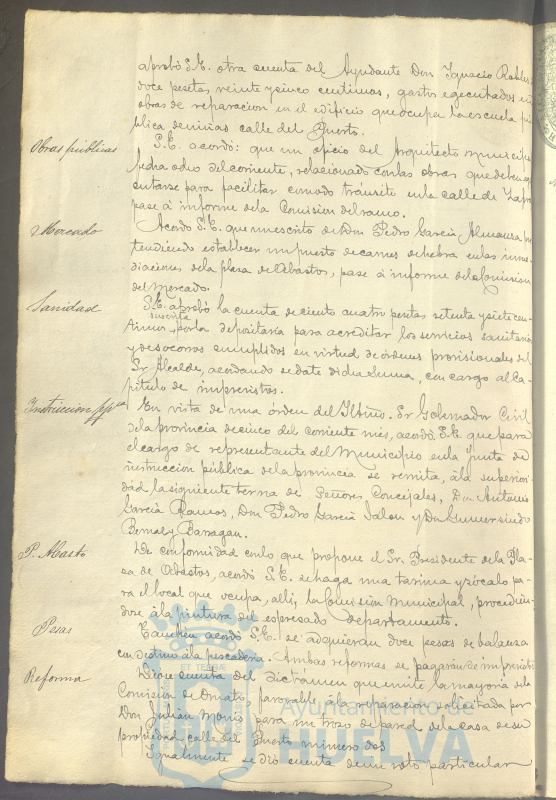 aprobó S.E. otra cuenta del Ayudante Don Ignacio
doce pesetas veinte y cinco centimos, gastos egecutados en
obras de reparacion en el edificio que ocupa la escuela pú
blica de niñas calle del Puerto.
Obras públicas
S.E. acordó: que un oficio del Arquitecto municipal
fecha ocho del corriente, relacionado con las obras que deben ege
cutarse para facilitar comodo tránsito en la calle de
pase á informe de la Comision del ramo.
Mercado
Acordó S.E. que un escrito de Don Pedro García Almansa pre
tendiendo establecer un puesto de carnes de hebra en las inme
diaciones de la plaza de Abastos, pase á informe de la Comision
del Mercado.
Sanidad
S.E. aprobó la cuenta de ciento cuatro pesetas setenta y siete cen
suscrita
timos, por la depositaria para acreditar los servicios sanitarios
y de socorros cumplidos en virtud de órdenes provisionales del
Sr Alcalde, acordando se date dicha suma, con cargo al Ca
pitulo de imprevistos.
Instruccion ppca
En vista de una órden del Iltmo. Sr Gobernador Civil
de la provincia de cinco del corriente mes, acordó S.E. que para
el cargo de representante del Municipio en la Junta de
instrucción pública de la provincia se remita, á la superiori
dad la siguiente terna de Señores Concejales, Don Antonio
García Ramos, Don Pedro García Jalon y Don Gumersindo
Bernal y Barragan.
P. Abasto
De conformidad con lo que propone el Sr. Presidente de la Pla
za de Abastos, acordó S.E. se haga una tarima y zócalo pa
ra el local que ocupa, alli, la Comisión Municipal, procedien
dose á la pintura del espresado departamento.
Pesas
Tambien acordó S.E. se adquieran doce pesas de balanza
con destino á la pescaderia. Ambas reformas se pagarán de imprevistos
Reforma
Diose cuenta del dictámen que emite la mayoría de la
Comision de Ornato, favorable á la reparacion solicitada por
Don Julián Monis para un trozo de pared de la casa de su
propiedad calle del Puerto número dos
Igualmente se dió cuenta de un voto particular
Ayuntamiento de
HUELVA